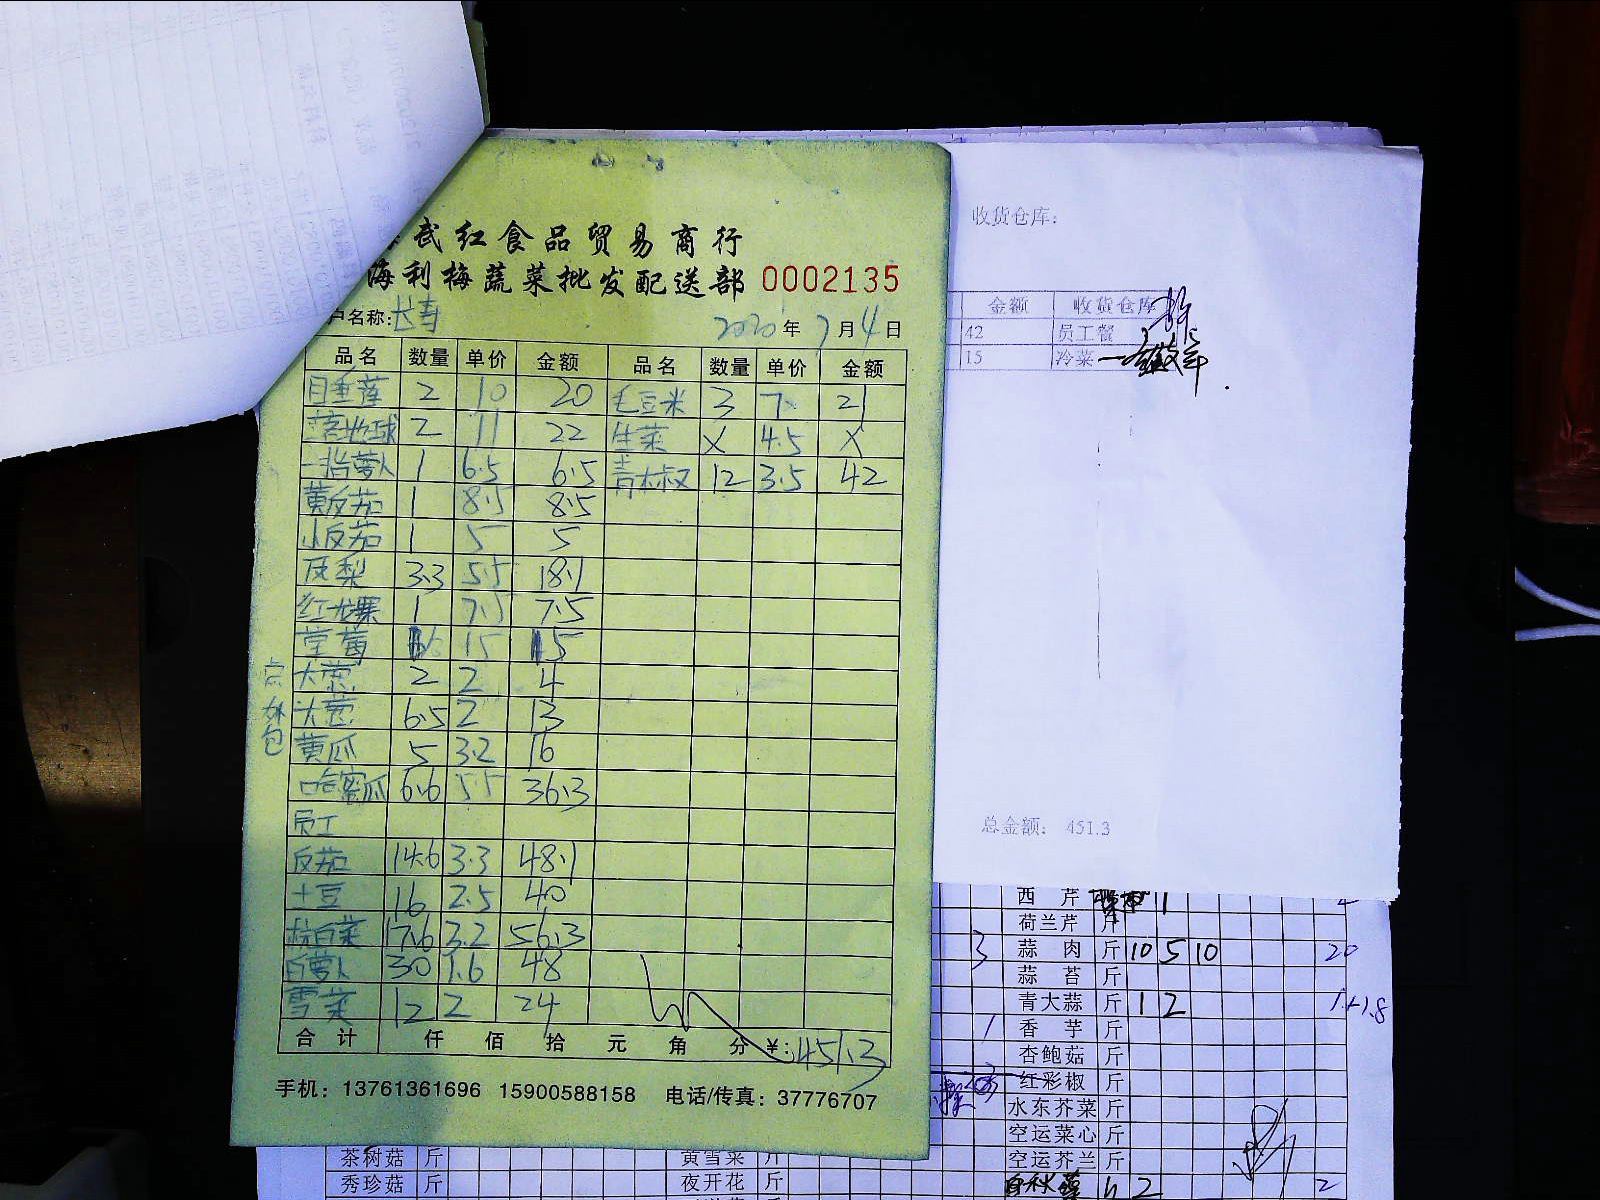 武红食品贸易商行
海利梅蔬菜批发配送部 0002135
户名称: 长寿 2020年7月4日
品名 数量 单价 金额 品名 数量 单价 金额
2 10 20 毛豆米 3 7 21
2 11 22 生菜 X 4.5 X
1 6.5 6.5 青椒 12 3.5 42
黄反茄 1 8.5 8.5
小反茄 1 5 5
凤梨 3.3 5.5 18.1
红龙果 1 7.5 7.5
15 15
大葱 2 2 4
6.5 2 13
黄瓜 5 3.2 16
哈蜜瓜 6.6 5.5 36.3
员工
反茄 14.6 3.3 48.1
土豆 16 2.5 40
白菜 17.6 3.2 56.3
白萝卜 30 1.6 48
雪菜 12 2 24
合计 仟 佰 拾 元 角 分 ¥:451.3
手机: 13761361696 15900588158 电话/传真: 37776707
收货仓库:
金额 收货仓库
42 员工餐
15 冷菜
总金额: 451.3
西芹 1
荷兰芹 斤
3 蒜肉 斤 10 5 10 20
蒜苔 斤
青大蒜 斤 1 2
1 香芋 斤
杏鲍菇 斤
红彩椒 斤
水东芥菜 斤
空运菜心 斤
空运芥兰 斤
2 2
茶树菇 斤 黄雪菜 斤
秀珍菇 斤 夜开花 斤